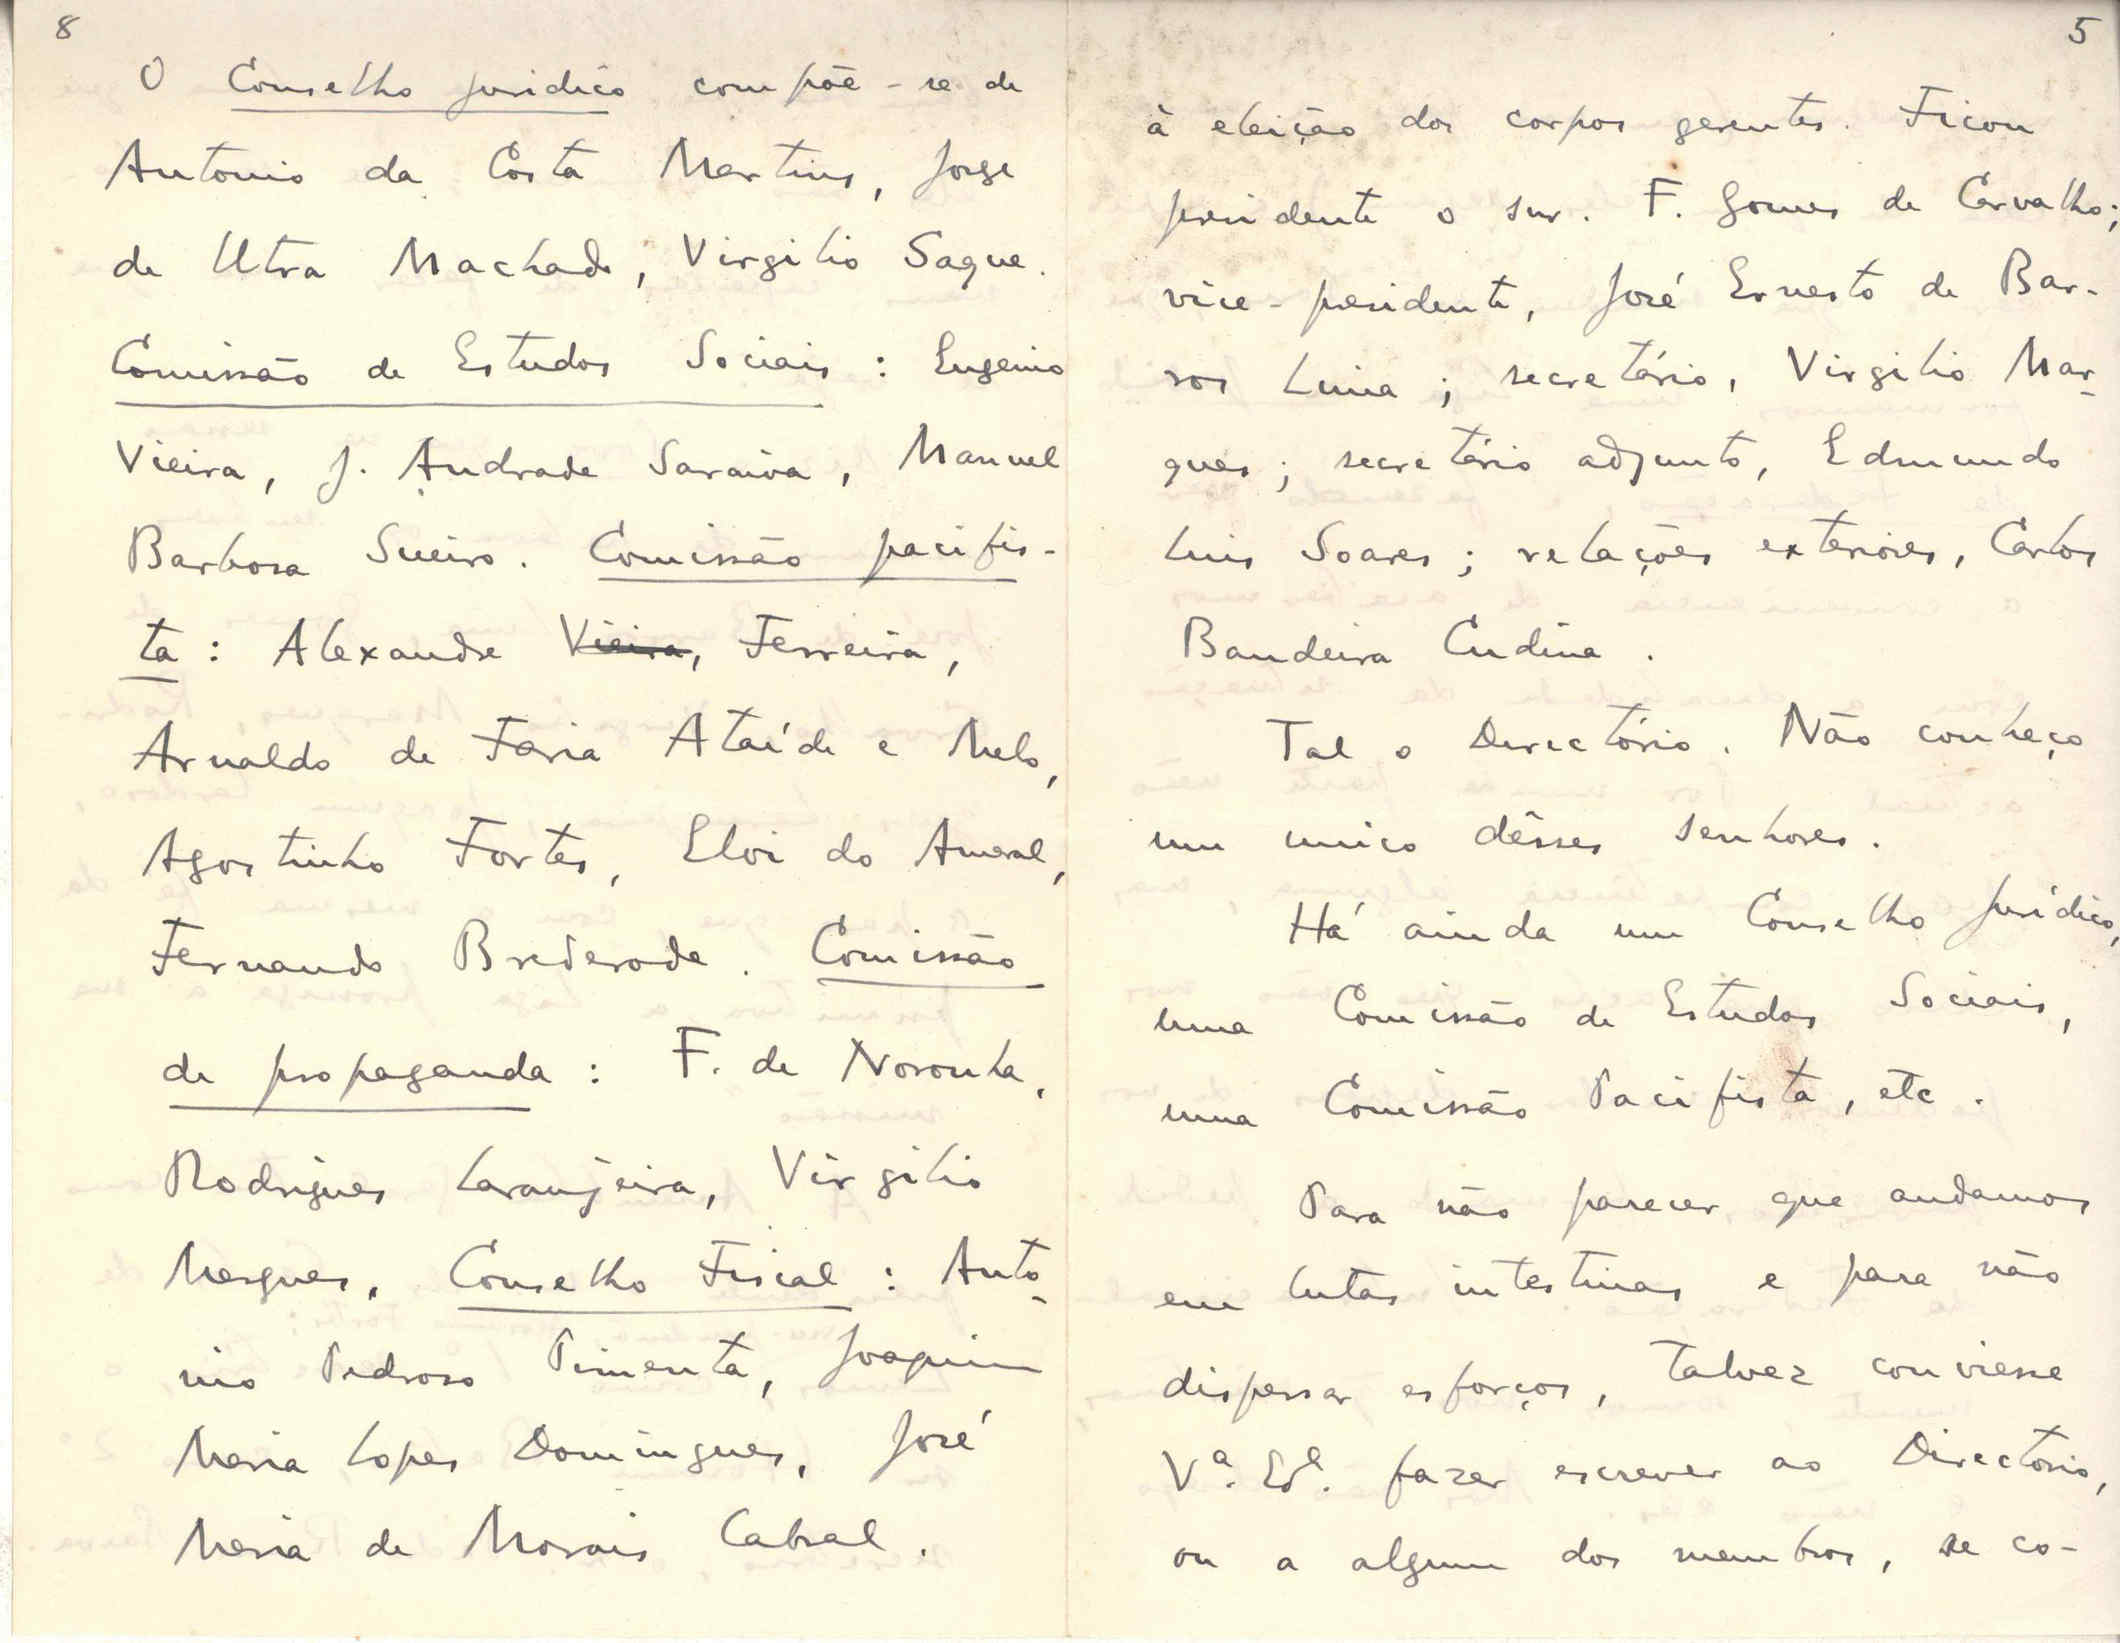 8
O Conselho jurídico compõe-se de
Antonio da Costa Martins, Jorge
de Utra Machado, Virgilio Saque.
Comissão de Estudos Sociais : Eugenio
Vieira, J. Andrade Saraiva, Manuel
Barbosa Sueiro. Comissão pacifis-
ta : Alexandre Vieira, Ferreira,
Arnaldo de Faria Ataíde e Melo,
Agostinho Fortes, Eloi do Amaral,
Fernando Brederode. Comissão
de propaganda : F. de Noronha,
Rodrigues Laranjeira, Virgilio
Marques, Conselho Fiscal : Anto-
nio Pedroso Pimenta, Joaquim
Maria Lopes Domingues, José
Maria de Morais Cabral.
5
à eleição dos corpos gerentes. Ficou
presidente o snr. F. Gomes de Carvalho;
vice-presidente, José Ernesto de Bar-
ros Lima ; secretário, Virgilio Mar-
ques ; secretário adjunto, Edmundo
Luis Soares ; relações exteriores, Carlos
Bandeira Codina.
Tal o Directório. Não conheço
um unico dêsses senhores.
Há ainda um Conselho Jurídico,
uma Comissão de Estudos Sociais,
uma Comissão Pacifista, etc.
Para não parecer que andamos
em lutas intestinas e para não
dispersar esforços, talvez conviesse
Vª. Exª. fazer escrever ao Directório,
ou a algum dos membros, se co-